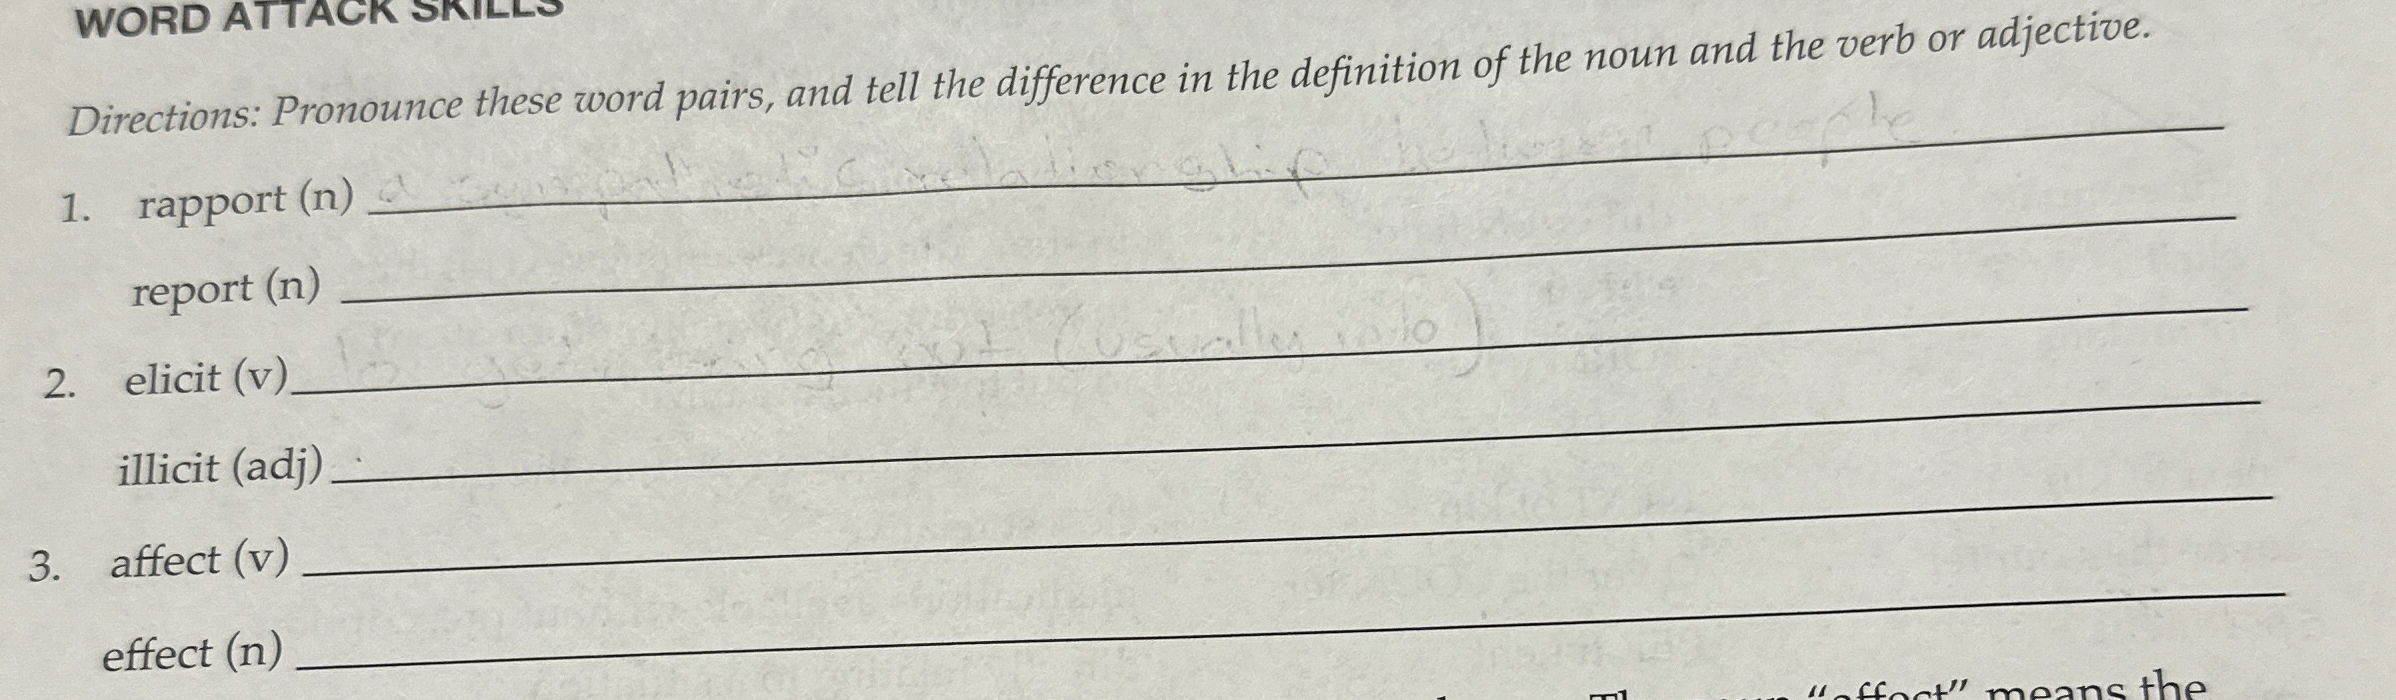 WORD ATTACK SKILLS
Directions: Pronounce these word pairs, and tell the difference in the definition of the noun and the verb or adjective.
1. rapport (n) a sympathetic relationship between people
report (n)
2. elicit (v) (usually info)
illicit (adj)
3. affect (v)
effect (n)
means the